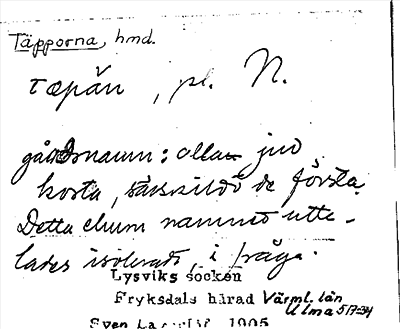 Täpporna, hmd.
tæpăn, pl. N.
gårdsnamn: allan jud
korta, särskildt de första.
Detta enum namnet utta-
lades isoleradt, i fråga.
Lysviks socken
Fryksdals härad Värml. län
Ulma 5/7-34
Sven 1905